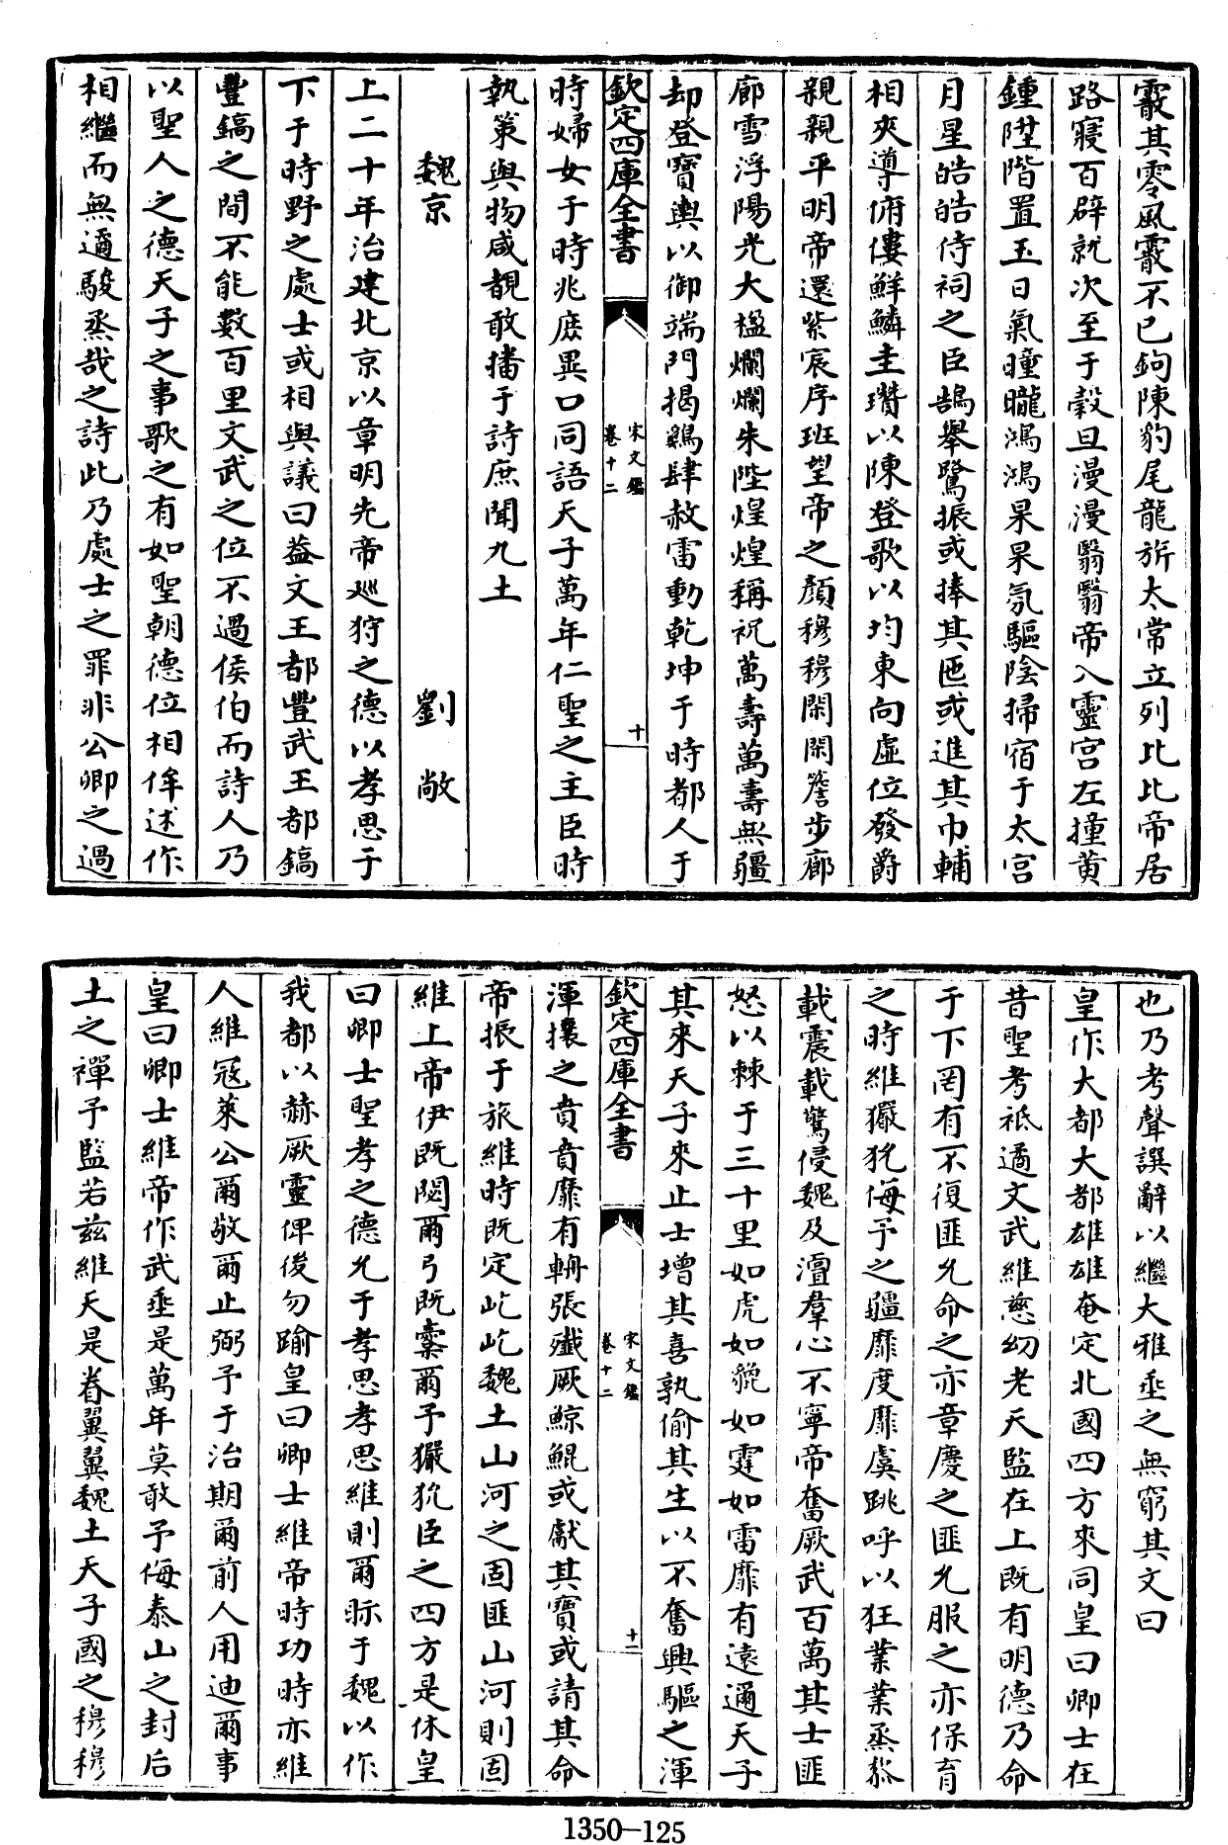 霰其零風霰不已鉤陳豹尾龍旂太常立列比比帝居
路寢百辟就次至于穀旦漫漫翳翳帝入靈宫左撞黄
鍾陞階置玉日氣曈曨鴻鴻杲杲氛驅陰掃宿于太宫
月星皓皓侍祠之臣鵠舉鷺振或捧其匜或進其巾輔
相夾導俯僂鮮鱗圭瓚以陳登歌以均東向虛位發爵
親親平明帝還紫宸序班望帝之顏穆穆閑閑簷步廊
廊雪浮陽光大楹爛爛朱陛煌煌稱祝萬壽萬壽無疆
却登寶輿以御端門揭鷄肆赦雷動乾坤于時都人于
欽定四庫全書
宋文鑑
卷十二
十
時婦女于時兆庶異口同語天子萬年仁聖之主臣時
執策與物咸覩敢播于詩庶聞九土
魏京
劉敞
上二十年治建北京以章明先帝廵狩之德以孝思于
下于時野之處士或相與議曰葢文王都豐武王都鎬
豐鎬之間不能數百里文武之位不過侯伯而詩人乃
以聖人之德天子之事歌之有如聖朝德位相侔述作
相繼而無遹駿烝哉之詩此乃處士之罪非公卿之過
也乃考聲譔辭以繼大雅垂之無窮其文曰
皇作大都大都雄雄奄定北國四方來同皇曰卿士在
昔聖考祗遹文武維慈幼老天監在上既有明德乃命
于下罔有不復匪允命之亦章慶之匪允服之亦保育
之時維玁狁侮予之疆靡度靡虞跳呼以狂業業烝黎
載震載驚侵魏及澶羣心不寧帝奮厥武百萬其士匪
怒以棘于三十里如虎如貔如霆如雷靡有遠邇天子
其來天子來止士增其喜孰偷其生以不奮興驅之渾
欽定四庫全書
宋文鑑
卷十二
十一
渾攘之賁賁靡有輈張殱厥鯨鯤或獻其寶或請其命
帝振于旅維時既定屹屹魏土山河之固匪山河則固
維上帝伊既閟爾弓既櫜爾予玁狁臣之四方是休皇
曰卿士聖孝之德允于孝思孝思維則爾眎于魏以作
我都以赫厥靈俾後勿踰皇曰卿士維帝時功時亦維
人維冦萊公爾敬爾止弼予于治期爾前人用迪爾事
皇曰卿士維帝作武垂是萬年莫敢予侮泰山之封后
土之禪予監若兹維天是眷翼翼魏土天子國之穆穆
1350—125